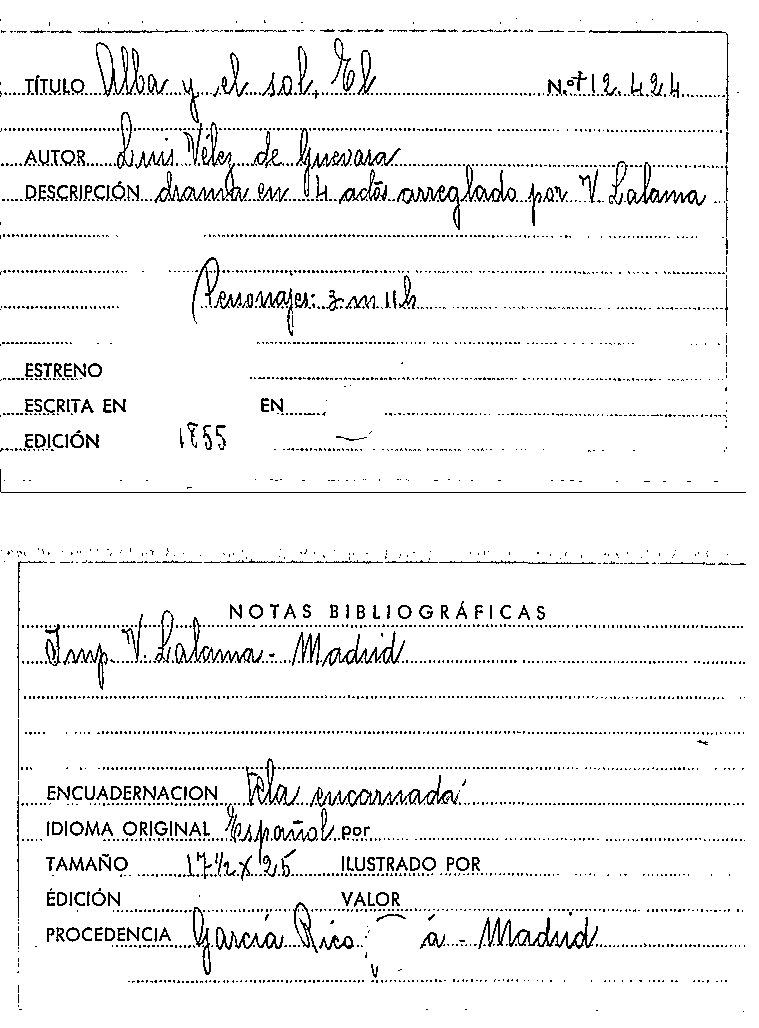 TÍTULO Alba y el sol, El N.º 12.424
AUTOR Luis Vélez de Guevara
DESCRIPCIÓN drama en 4 actos arreglado por V. Lalama
Personajes: 3 m 11 h
ESTRENO
ESCRITA EN EN
EDICIÓN 1855
NOTAS BIBLIOGRÁFICAS
Imp. V. Lalama - Madrid
ENCUADERNACION Tela encarnada
IDIOMA ORIGINAL Español por
TAMAÑO 17 1/2 x 25 ILUSTRADO POR
EDICIÓN VALOR
PROCEDENCIA García Rico - Madrid